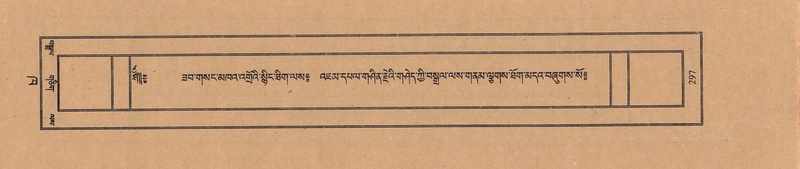 ཟབ་གསང་མཁའ་འགྲོའི་སྙིང་ཐིག་ལས༔ འཇམ་དཔལ་གཤིན་རྗེའི་གཤེད་ཀྱི་བསྒྲུལ་ལས་གནམ་ལྕགས་ཐོག་མདའ་བཞུགས་སོ༔
297